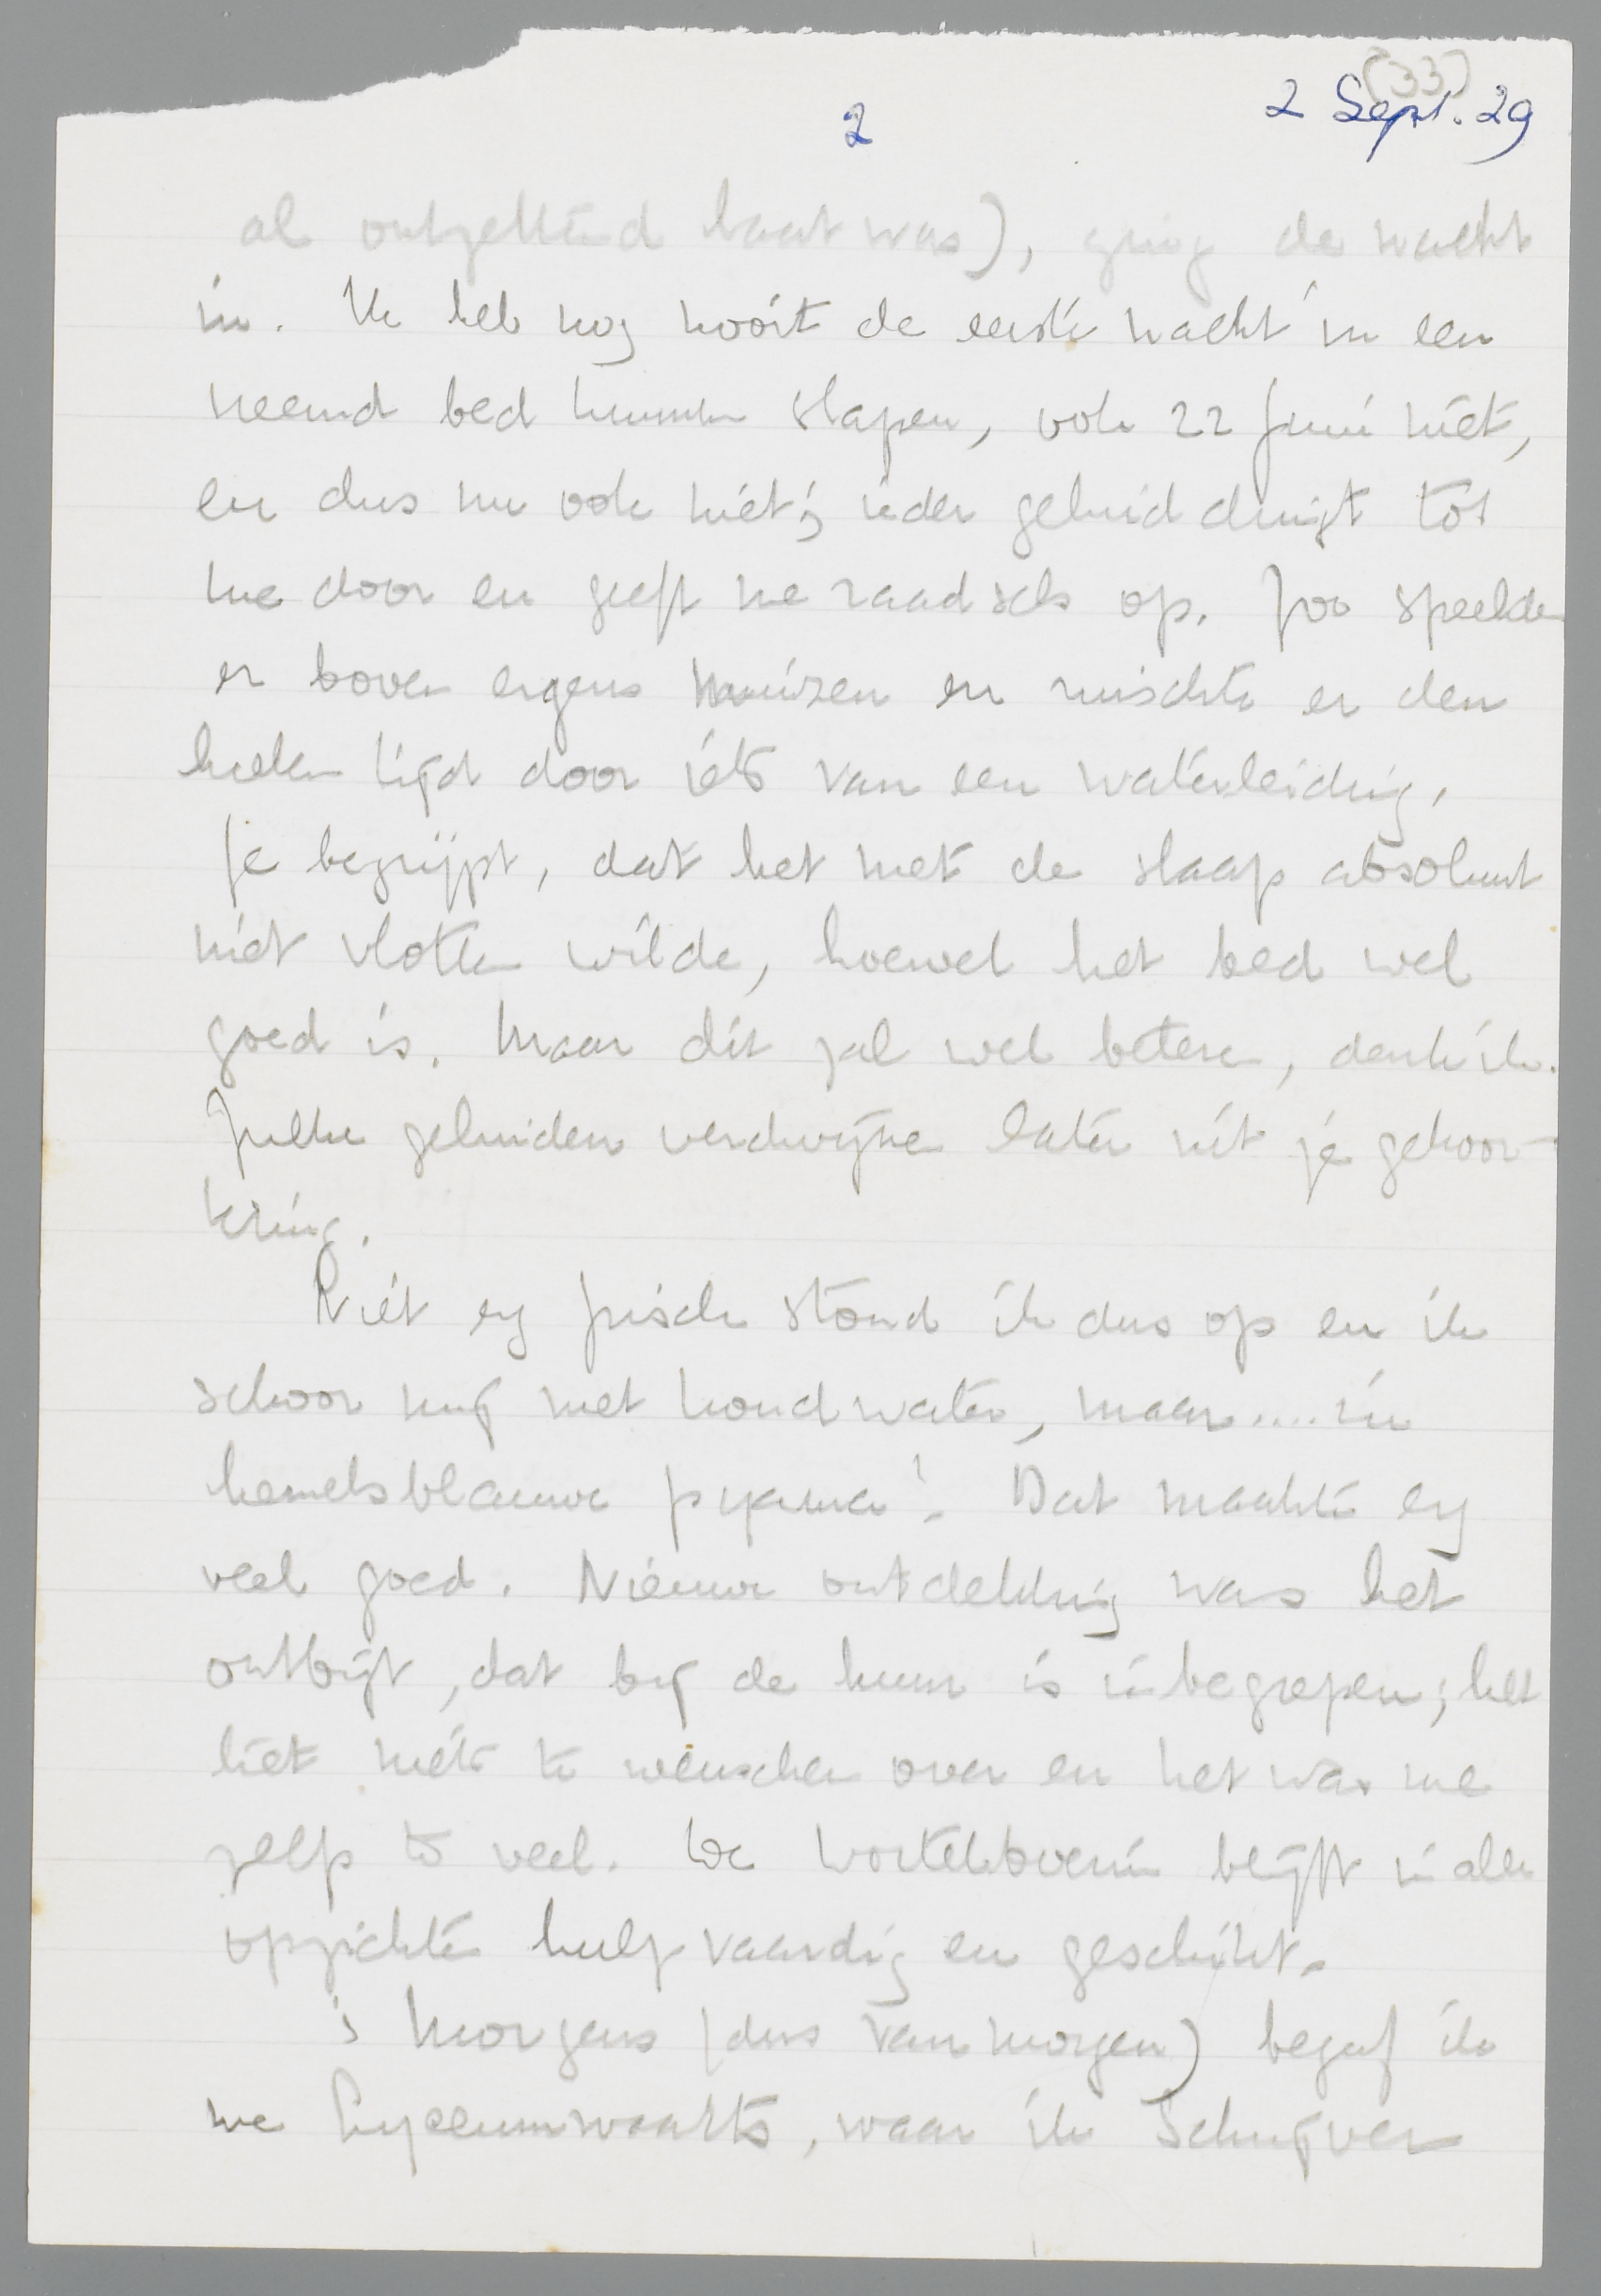 (33)
2 Sept. 29
2
al ontzettend laat was), ging de nacht
in. Ik heb nog nooit de eerste nacht in een
vreemd bed kunnen slapen, ook 22 Juni niet,
en dus nu ook niet; ieder geluid dringt tot
me door en geeft me raadsels op. Zoo speelden
er boven ergens muizen en ruischte er den
heelen tijd door iets van een waterleiding.
Je begrijpt, dat het met de slaap absoluut
niet vlotten wilde, hoewel het bed wel
goed is. Maar dit zal wel beteren, denk ik.
Zulke geluiden verdwijnen later uit je gehoor-
kring.
Niet erg frisch stond ik dus op en ik
schoor mij met koud water, maar.... in
hemelsblauwe pyama! Dat maakte erg
veel goed. Nieuwe ontdekking was het
ontbijt, dat bij de huur is inbegrepen; het
liet niets te wenschen over en het was me
zelfs te veel. De Wortelboerin blijft in alle
opzichten hulpvaardig en geschikt.
's Morgens (dus van morgen) begaf ik
me Lyceumwaarts, waar ik Schrijver